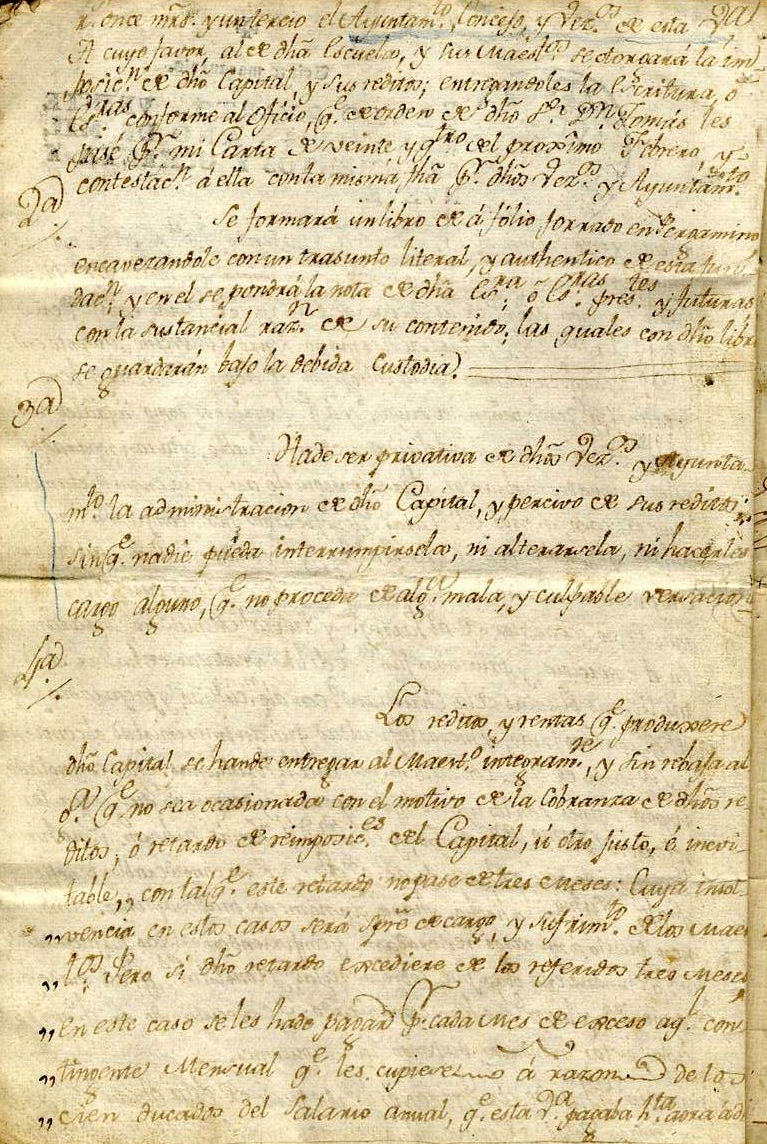 r. once mrs. y un tercio el Ayuntam.to, Concejo, y Vez.os de esta V.a
A cuyo favor, al de dha Escuela, y sus Maest.os se otorgará la im-
posic.n de dho Capital, y sus reditos; entregandoles la Escritura, ó
Es.ras conforme al Oficio, q.e de orden de dho S.r D.n Tomás les
pasé p.r mi Carta de veinte y q.tro del proximo Febrero, y
contestac.n á ella con la misma fha p.r dhos Vez.os y Ayuntam.to
2.a
Se formará un libro de á fólio forrado en Pergamino
encavezandole con un trasunto literal, y authentico de esta fun-
dac.n y en el se pondrá la nota de dha Es.ra, ó Es.ras pres.tes y futuras
con la sustancial raz.n de su contenido; las quales con dho libro
se guardarán bajo la debida Custodia).
3.a
Ha de ser privativa de dhos Vez.os y Ayunta-
m.to la administracion de dho Capital, y percivo de sus reditos;
sin q.e nadie pueda interrumpirsela, ni alterarsela, ni hacerles
cargo alguno, q.e no proceda de alg.a mala, y culpable versacion
4.a
Los reditos, y rentas q.e produxere
dho Capital se han de entregar al Maest.o integram.te, y sin rebaja al-
g.a q.e no sea ocasionada con el motivo de la Cobranza de dhos re-
ditos, ó retardo de reimposic.es del Capital, ú otro justo, é inevi-
table, con tal q.e este retardo no pase de tres Meses: Cuya insol-
„vencia en estos casos será spre de cargo, y sufrim.to de los Maes-
„t.os Pero si dho retardo excediere de los referidos tres Meses
„en este caso se les ha de pagar p.r cada Mes de exceso aq.l con-
„tingente Mensual q.e les cupiese á razon de los
„cien ducados del Salario anual, q.e esta V.a pagaba h.ta aora ad-